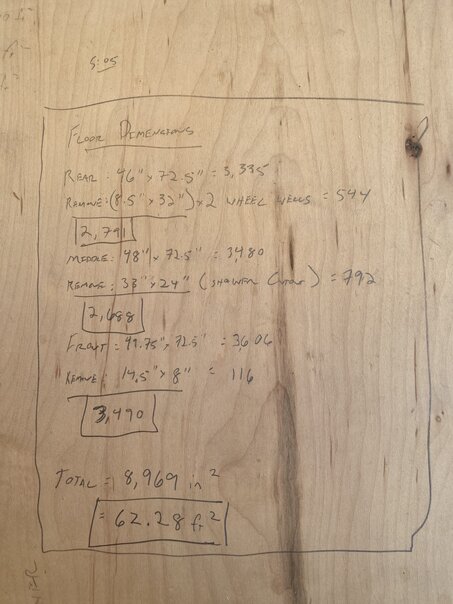 5:05
FLOOR DIMENSIONS
REAR: 46" x 72.5" = 3,335
REMOVE: (8.5" x 32") x 2 WHEEL WELLS = 544
2,791
MIDDLE: 48" x 72.5" = 3480
REMOVE: 33" x 24" (SHOWER CUTOUT) = 792
2,688
FRONT: 49.75" x 72.5" = 3606
REMOVE: 14.5" x 8" = 116
3,490
TOTAL = 8,969 in²
= 62.28 ft²